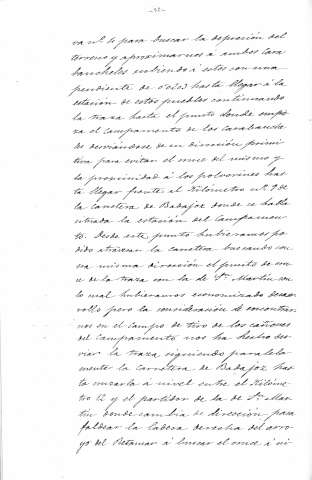 —52—
ra nº 6 para buscar la depresión del
terreno y aproximarnos a ambos Cara
bancheles subiendo á estos con una
pendiente de 0'013 hasta llegar á la
estacion de estos pueblos continuando
la traza hasta el punto donde empie
za el campamento de los Carabanche
les desviándose de su dirección primi
tiva para evitar el cruce del mismo y
la proximidad á los polvorines has
ta llegar frente al Kilómetro nº 9 de
la Carretera de Badajoz donde se halla
situada la estación del Campamen
to. Desde este punto hubieramos po
dido atravesar la carretera buscando con
una misma dirección el punto de cru
ce de la traza con la de Sn. Martin con
lo cual hubieramos economizado desar
rollo pero la consideración de encontrar
nos en el campo de tiro de los cañones
del Campamento nos ha hecho des
viar la traza siguiendo paralela
mente la Carretera de Badajoz has
ta cruzarla á nivel entre el Kilóme
tro 12 y el partidor de la de Sn. Mar
tin donde cambia de dirección para
faldear la ladera derecha del arro
yo del Retamar á buscar el cruce á ni